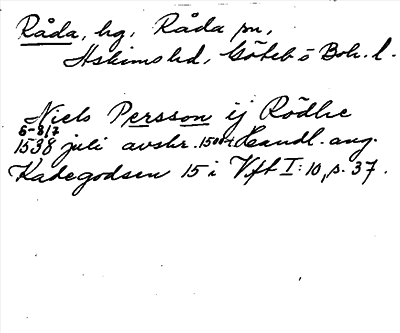 Råda, hg, Råda sn,
Askims hd, Göteb o Boh. l.
Niels Persson ij Rödhe
6-8/7
1538 juli avskr. 1500t. Handl. ang.
Kadegodsen 15 i Vft I:10, s. 37.